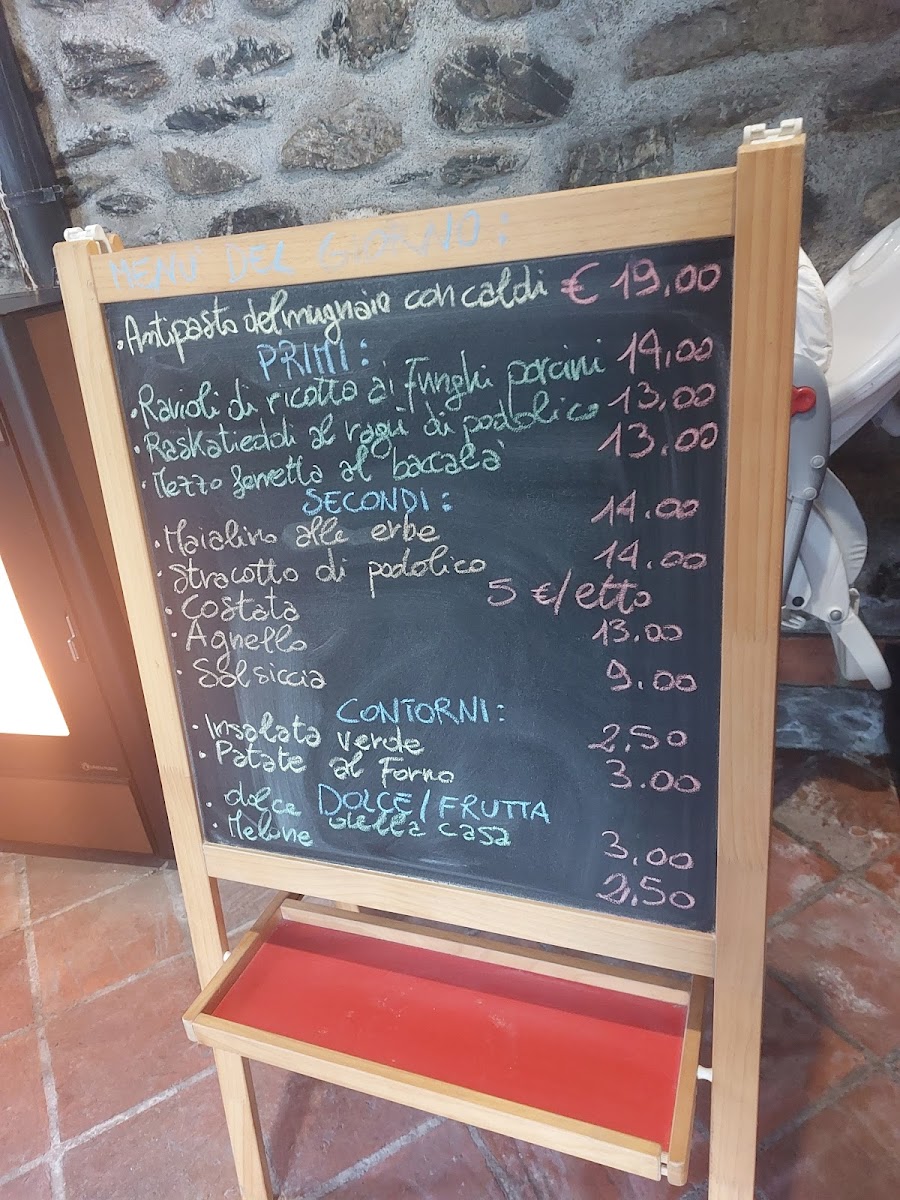 MENÙ DEL GIORNO:
• Antipasto del mugnaio con caldi € 19,00
PRIMI:
• Ravioli di ricotta ai Funghi porcini 14,00
• Raskatieddi al ragù di podolico 13,00
• Mezzo ferretto al baccalà 13,00
SECONDI:
• Maialino alle erbe 14.00
• Stracotto di podolico 14.00
• Costata 5 €/etto
• Agnello 13.00
• Salsiccia 9.00
CONTORNI:
• Insalata verde 2,50
• Patate al Forno 3.00
DOLCE/FRUTTA
• dolce della casa 3,00
• Melone 2,50